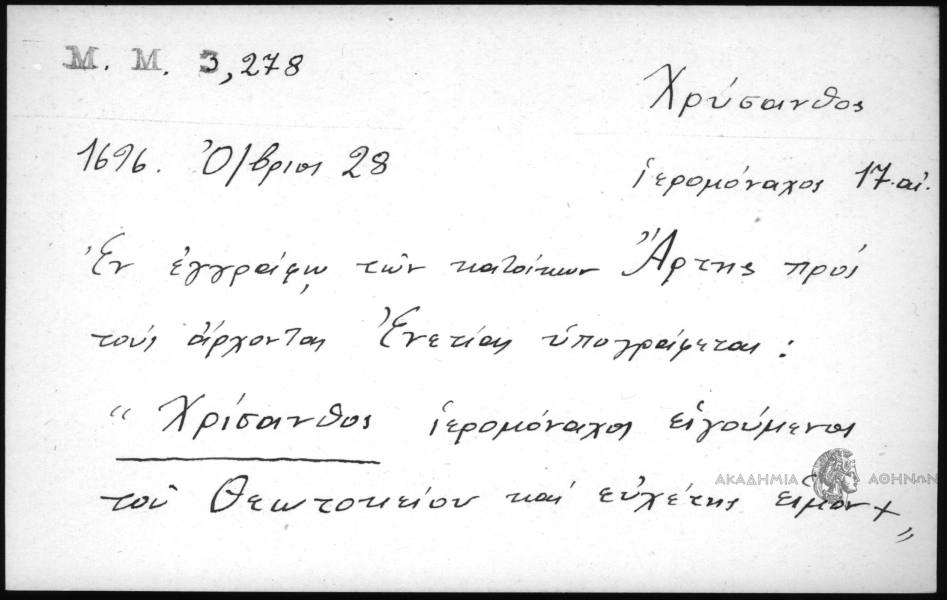 Μ. Μ. 3,278
Χρύσανθος
1696. Ὀ/βριος 28
ἱερομόναχος 17 αἰ.
Ἐν ἐγγράφῳ τῶν κατοίκων Ἄρτης πρός
τούς ἄρχοντας Ἐνετίας ὑπογράφεται :
“ Χρίσανθος ἱερομόναχος εἰγούμενος
τοῦ Θεωτοκείου καί εὐχέτης εἱμὸν + „
ΑΚΑΔΗΜΙΑ ΑΘΗΝΩΝ